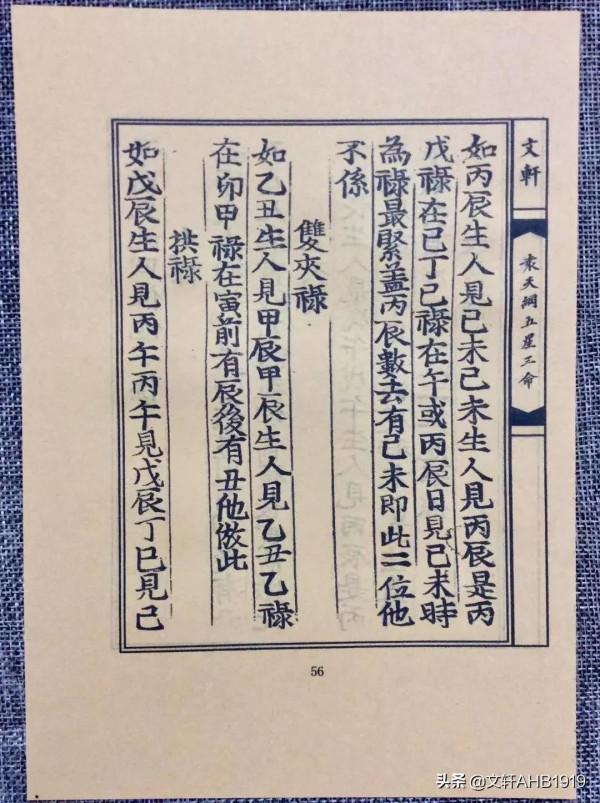 文軒
袁天綱五星三命
如丙辰生人見己未己未生人見丙辰是丙
戊祿在巳丁己祿在午或丙辰日見己未時
為祿最緊蓋丙辰數去有己未即此二位他
不係
雙夾祿
如乙丑生人見甲辰甲辰生人見乙丑乙祿
在卯甲祿在寅前有辰後有丑他倣此
拱祿
如戊辰生人見丙午丙午見戊辰丁巳見己
56
头条 @文轩AHB1919